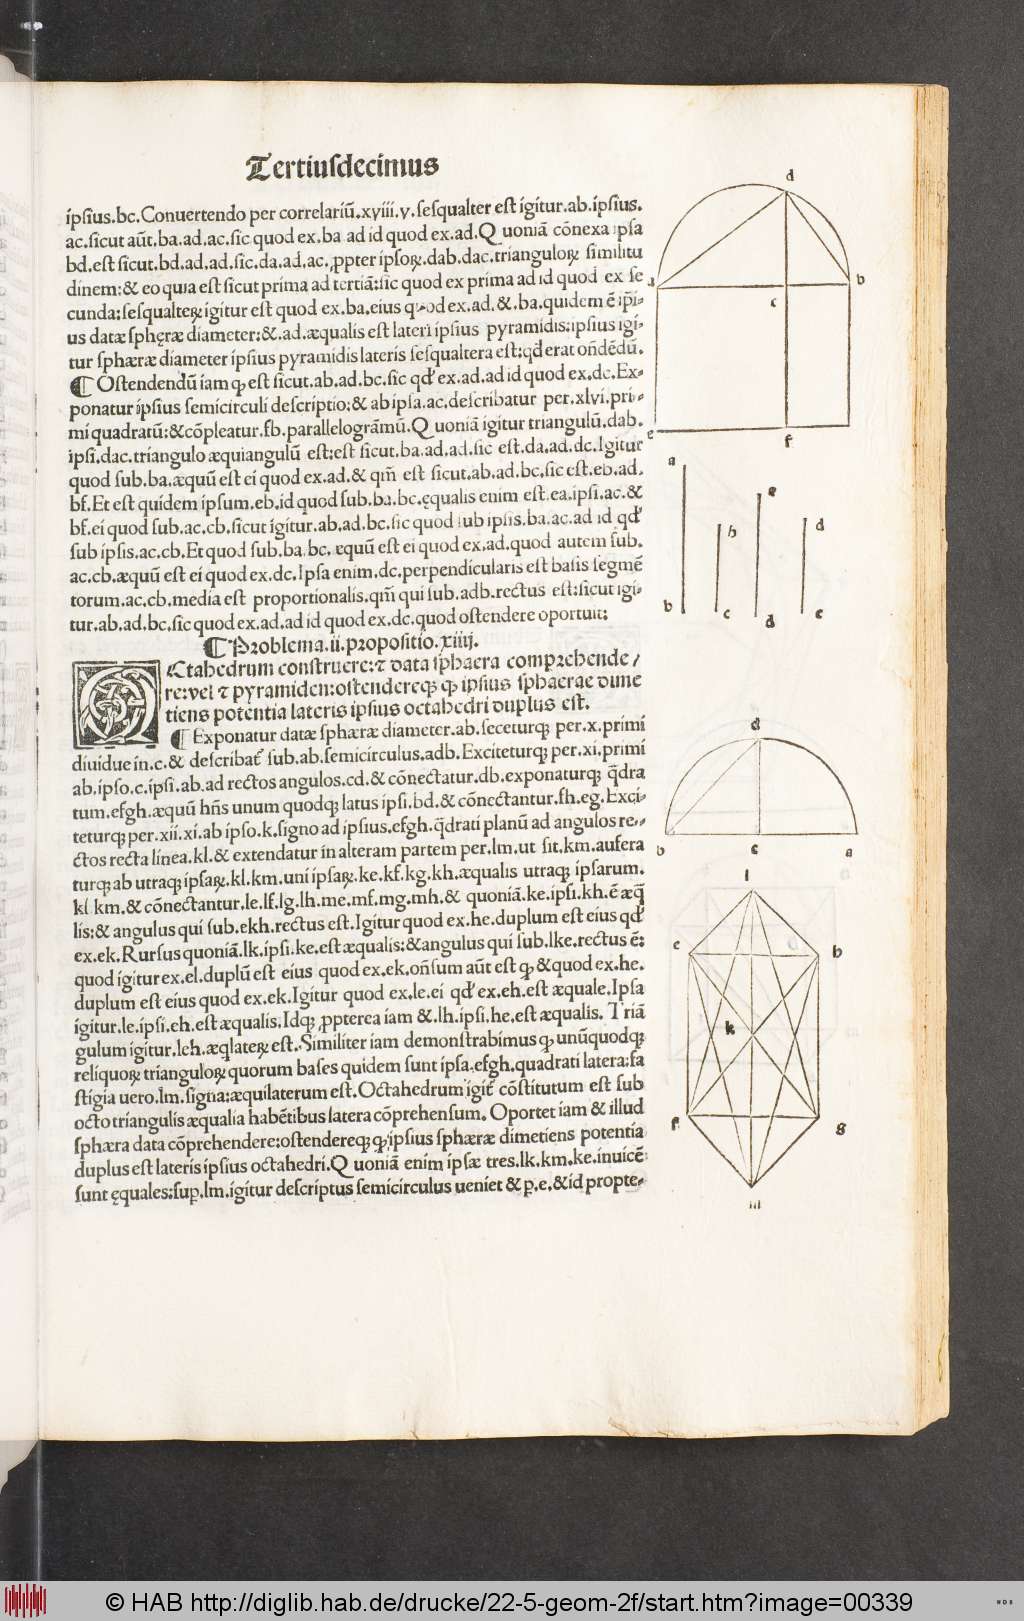 Tertiusdecimus
ipsius.bc.Conuertendo per correlariū.xviii.v.sesqualter est igitur.ab.ipsius.
ac.sicut aūt.ba.ad.ac.sic quod ex.ba ad id quod ex.ad.Quoniā cōnexa ipsa
bd.est sicut.bd.ad.ad.sic.da.ad.ac.ꝓpter ipsoꝝ.dab.dac.trianguloꝝ similitu
dinem:& eo quia est sicut prima ad tertiā:sic quod ex prima ad id quod ex se
cunda:sesqualteꝝ igitur est quod ex.ba.eius quod ex.ad.&.ba.quidem ē ip̄i-
us datæ sphęræ diameter:&.ad.æqualis est lateri ipsius pyramidis:ipsius igi-
tur sphæræ diameter ipsius pyramidis lateris sesqualtera est:qđ erat on̄dēdū.
¶ Ostendendū iam ꝙ est sicut.ab.ad.bc.sic qđ ex.ad.ad id quod ex.dc.Ex-
ponatur ipsius semicirculi descriptio:& ab ipsa.ac.describatur per.xlvi.pri-
mi quadratū:&cōpleatur.fb.parallelogrāmū.Quoniā igitur triangulū.dab.
ipsi.dac.triangulo æquiangulū est:est sicut.ba.ad.ad.sic est.da.ad.dc.Igitur
quod sub.ba.æquū est ei quod ex.ad.& qm̄ est sicut.ab.ad.bc.sic est.eb.ad.
bf.Et est quidem ipsum.eb.id quod sub.ba.bc.ęqualis enim est.ea.ipsi.ac.&
bf.ei quod sub.ac.cb.sicut igitur.ab.ad.bc.sic quod sub ipsis.ba.ac.ad id qđ
sub ipsis.ac.cb.Et quod sub.ba.bc.æquū est ei quod ex.ad.quod autem sub.
ac.cb.æquū est ei quod ex.dc.Ipsa enim.dc.perpendicularis est basis segmē
torum.ac.cb.media est proportionalis.qm̄ qui sub.adb.rectus est:sicut igi-
tur.ab.ad.bc.sic quod ex.ad.ad id quod ex.dc.quod ostendere oportuit:
¶ Problema.ii.propositio.xiiij.
OCtahedrum construere:⁊ data sphaera comprehende/
re:vel ⁊ pyramiden:ostendereqꝫ ꝙ ipsius sphaerae dime
tiens potentia lateris ipsius octahedri duplus est.
¶ Exponatur datæ sphæræ diameter.ab.seceturqꝫ per.x.primi
diuidue in.c.& describat̃ sub.ab.semicirculus.adb.Exciteturqꝫ per.xi.primi
ab.ipso.c.ipsi.ab.ad rectos angulos.cd.& cōnectatur.db.exponaturqꝫ q̄dra
tum.efgh.æquū hn̄s unum quodqꝫ latus ipsi.bd.& cōnectantur.fh.eg.Exci-
teturqꝫ per.xii.xi.ab ipso.k.signo ad ipsius.efgh.q̄drati planū ad angulos re-
ctos recta linea.kl.& extendatur in alteram partem per.lm.ut sit.km.aufera
turqꝫ ab utraqꝫ ipsaꝝ.kl.km.uni ipsaꝝ.ke.kf.kg.kh.æqualis utraqꝫ ipsarum.
kl.km.& cōnectantur.le.lf.lg.lh.me.mf.mg.mh.& quoniā.ke.ipsi.kh.ē æq̄
lis:& angulus qui sub.ekh.rectus est.Igitur quod ex.he.duplum est eius qđ
ex.ek.Rursus quoniā.lk.ipsi.ke.est æqualis:&angulus qui sub.lke.rectus ē:
quod igitur ex.el.duplū est eius quod ex.ek.on̄sum aūt est ꝙ &quod ex.he.
duplum est eius quod ex.ek.Igitur quod ex.le.ei qđ ex.eh.est æquale.Ipsa
igitur.le.ipsi.eh.est æqualis.Idqꝫ ꝓpterea iam &.lh.ipsi.he.est æqualis. Triā
gulum igitur.leh.æq̄lateꝝ est.Similiter iam demonstrabimus ꝙ unūquodqꝫ
reliquoꝝ trianguloꝝ quorum bases quidem sunt ipsa.efgh.quadrati latera:fa
stigia uero.lm.signa:æquilaterum est.Octahedrum igit̃ cōstitutum est sub
octo triangulis æqualia habētibus latera cōprehensum. Oportet iam & illud
sphæra data cōprehendere:ostendereqꝫ ꝙ ipsius sphæræ dimetiens potentia
duplus est lateris ipsius octahedri.Quoniā enim ipsæ tres.lk.km.ke.inuicē
sunt ęquales:sup.lm.igitur descriptus semicirculus ueniet & p.e.&id propte-
d
a
c
b
e
f
a
e
h
d
b
c
d
e
d
b
c
a
l
e
h
k
f
g
m
© HAB http://diglib.hab.de/drucke/22-5-geom-2f/start.htm?image=00339